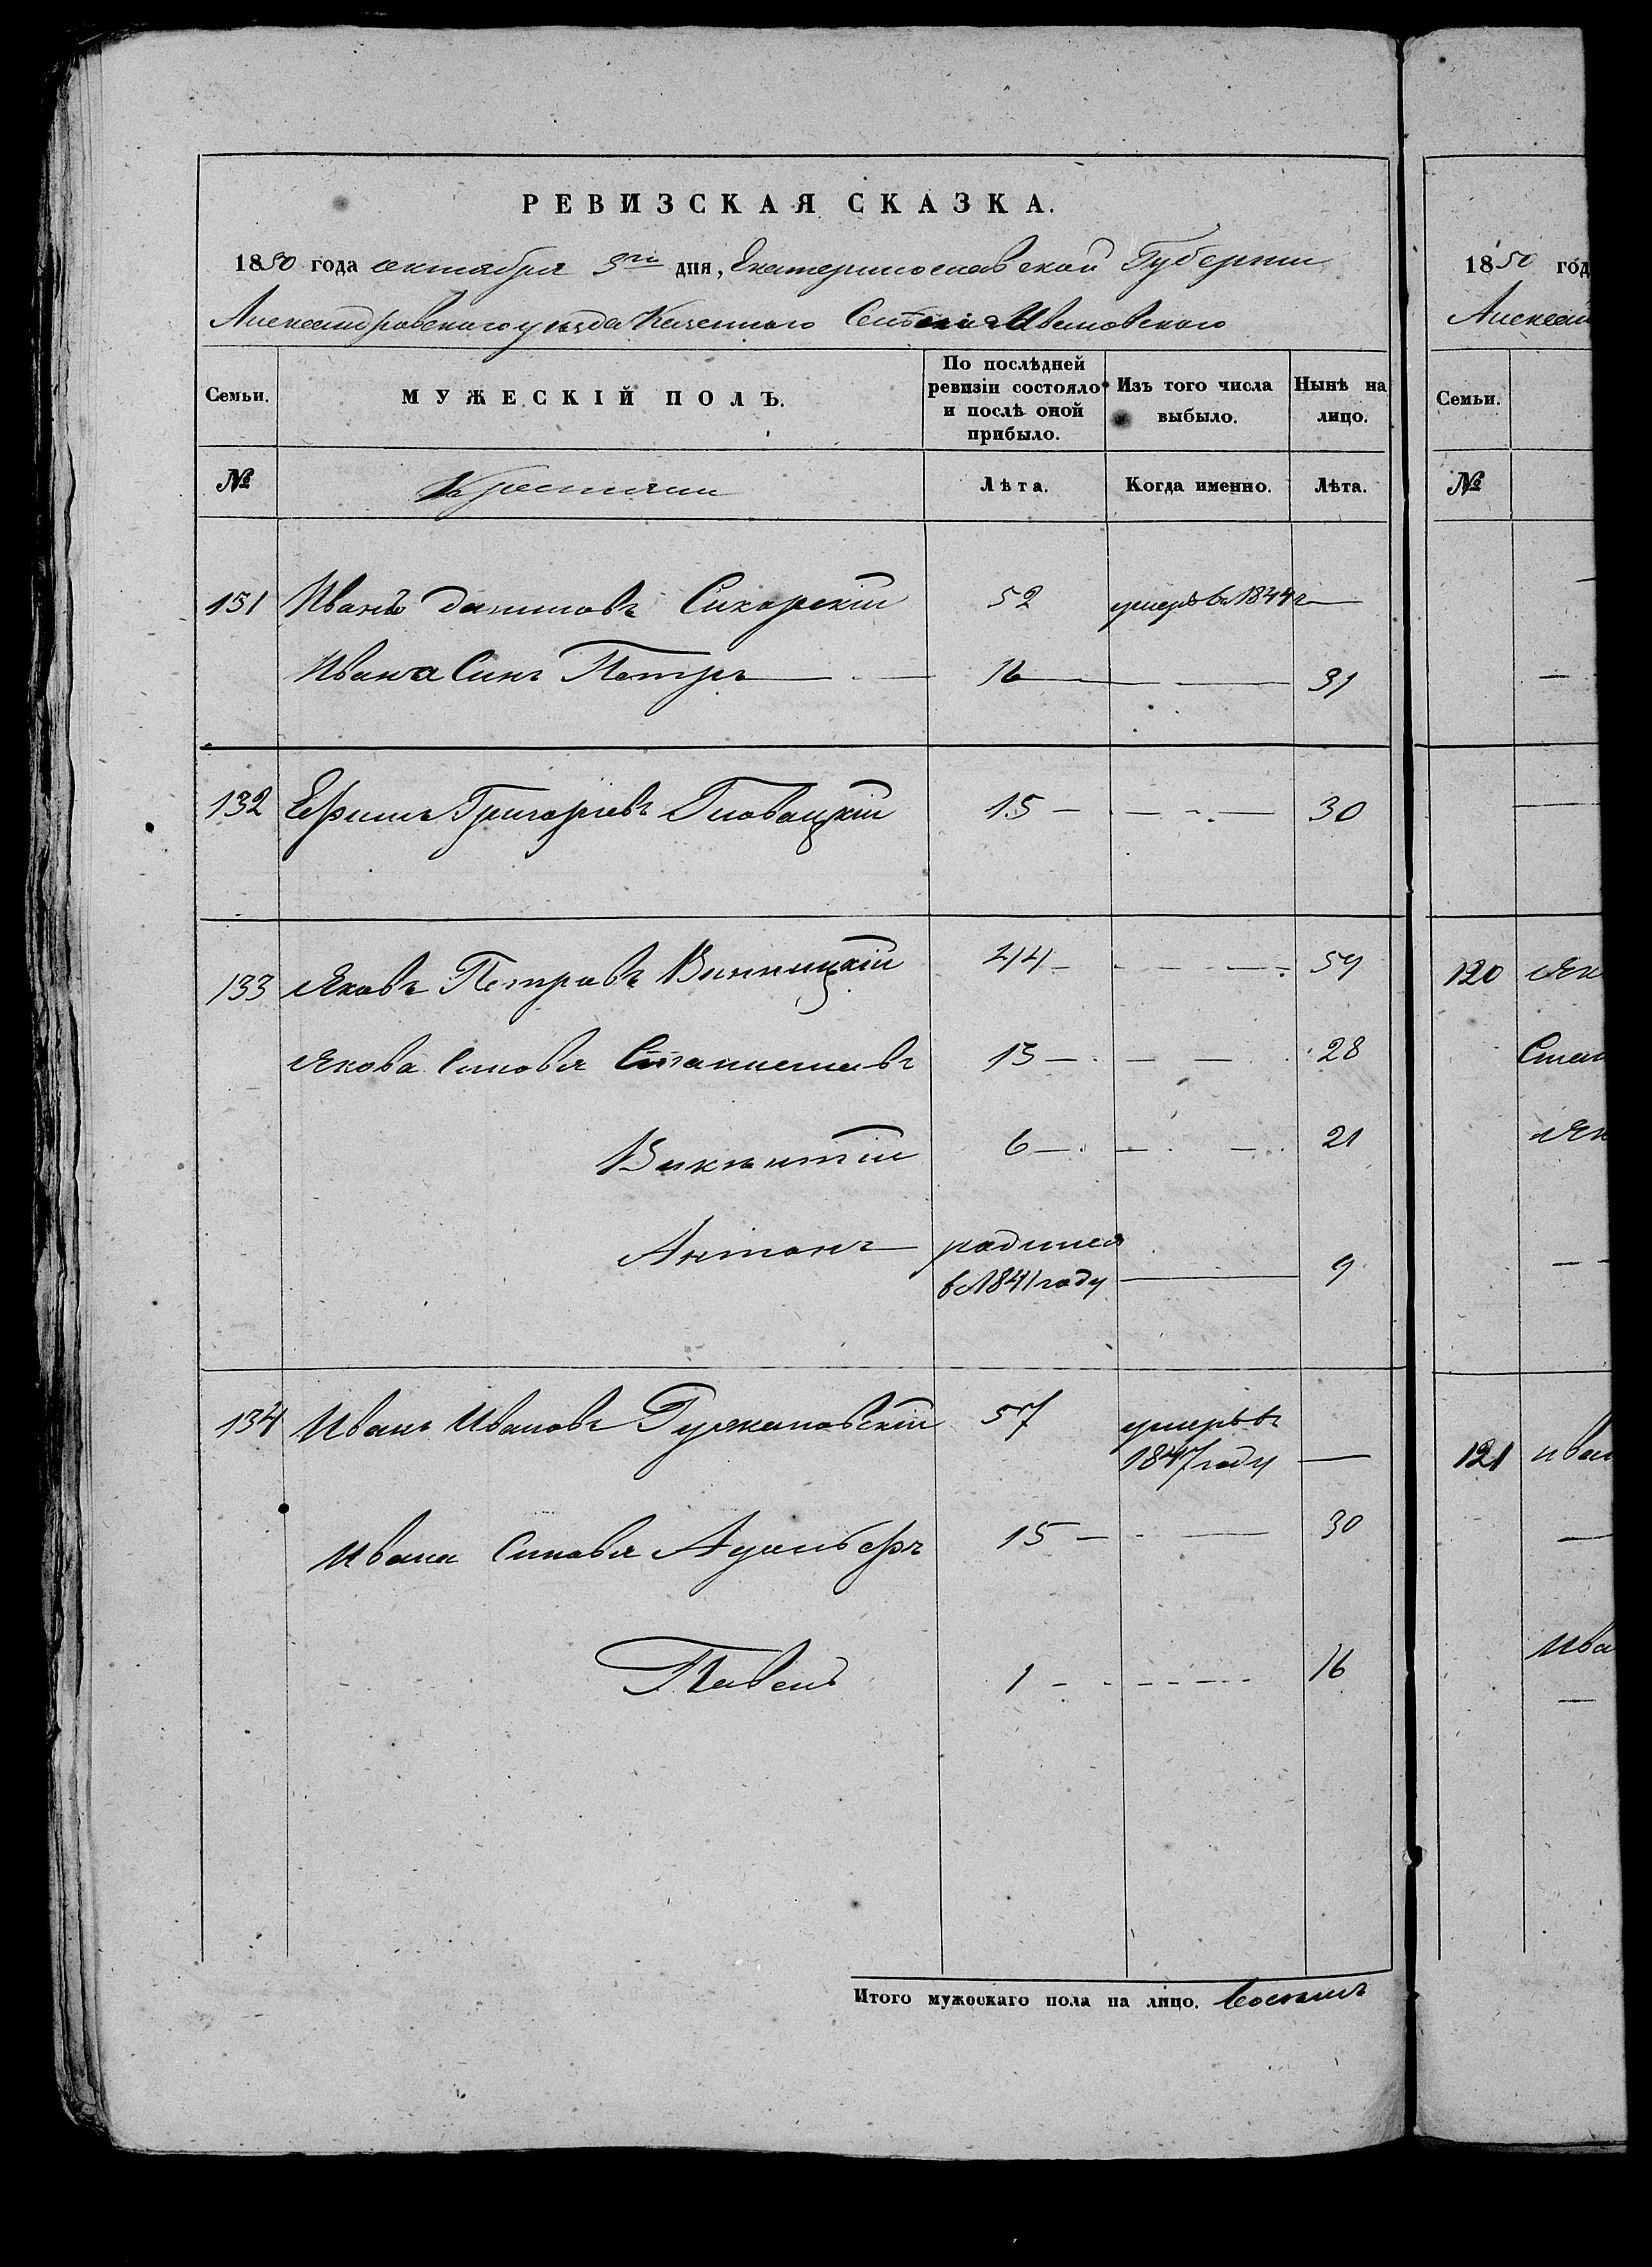 РЕВИЗСКАЯ СКАЗКА.
1850 года октября 3го дня, Екатеринославской Губернии
Александровского уезда Казенного Селения Ивановского
Семьи. МУЖЕСКІЙ ПОЛЪ. По послѣдней ревизіи состояло и послѣ оной прибыло. Изъ того числа выбыло. Нынѣ на лицо.
№ Крестьяни Лѣта. Когда именно. Лѣта.
131 Иванъ Даниловъ Сикорскій 52 умеръ въ 1844 г —
Ивана Синъ Петръ 16 — 31
132 Ефимъ Григорьевъ Гловацкій 15 — 30
133 Яковъ Петровъ Винницкій 44 — 59
Якова Синовья Станиславъ 13 — 28
Викентій 6 — 21
Антонъ родился
в 1841 году — 9
134 Иванъ Ивановъ Гужановскій 57 умеръ въ
1847 году —
Ивана Синовья Адольфъ 15 — 30
Павелъ 1 — 16
Итого мужескаго пола на лицо. Восемь
1850 год
Семьи.
№
120 Як
Стан
Як
121 Иван
Ива